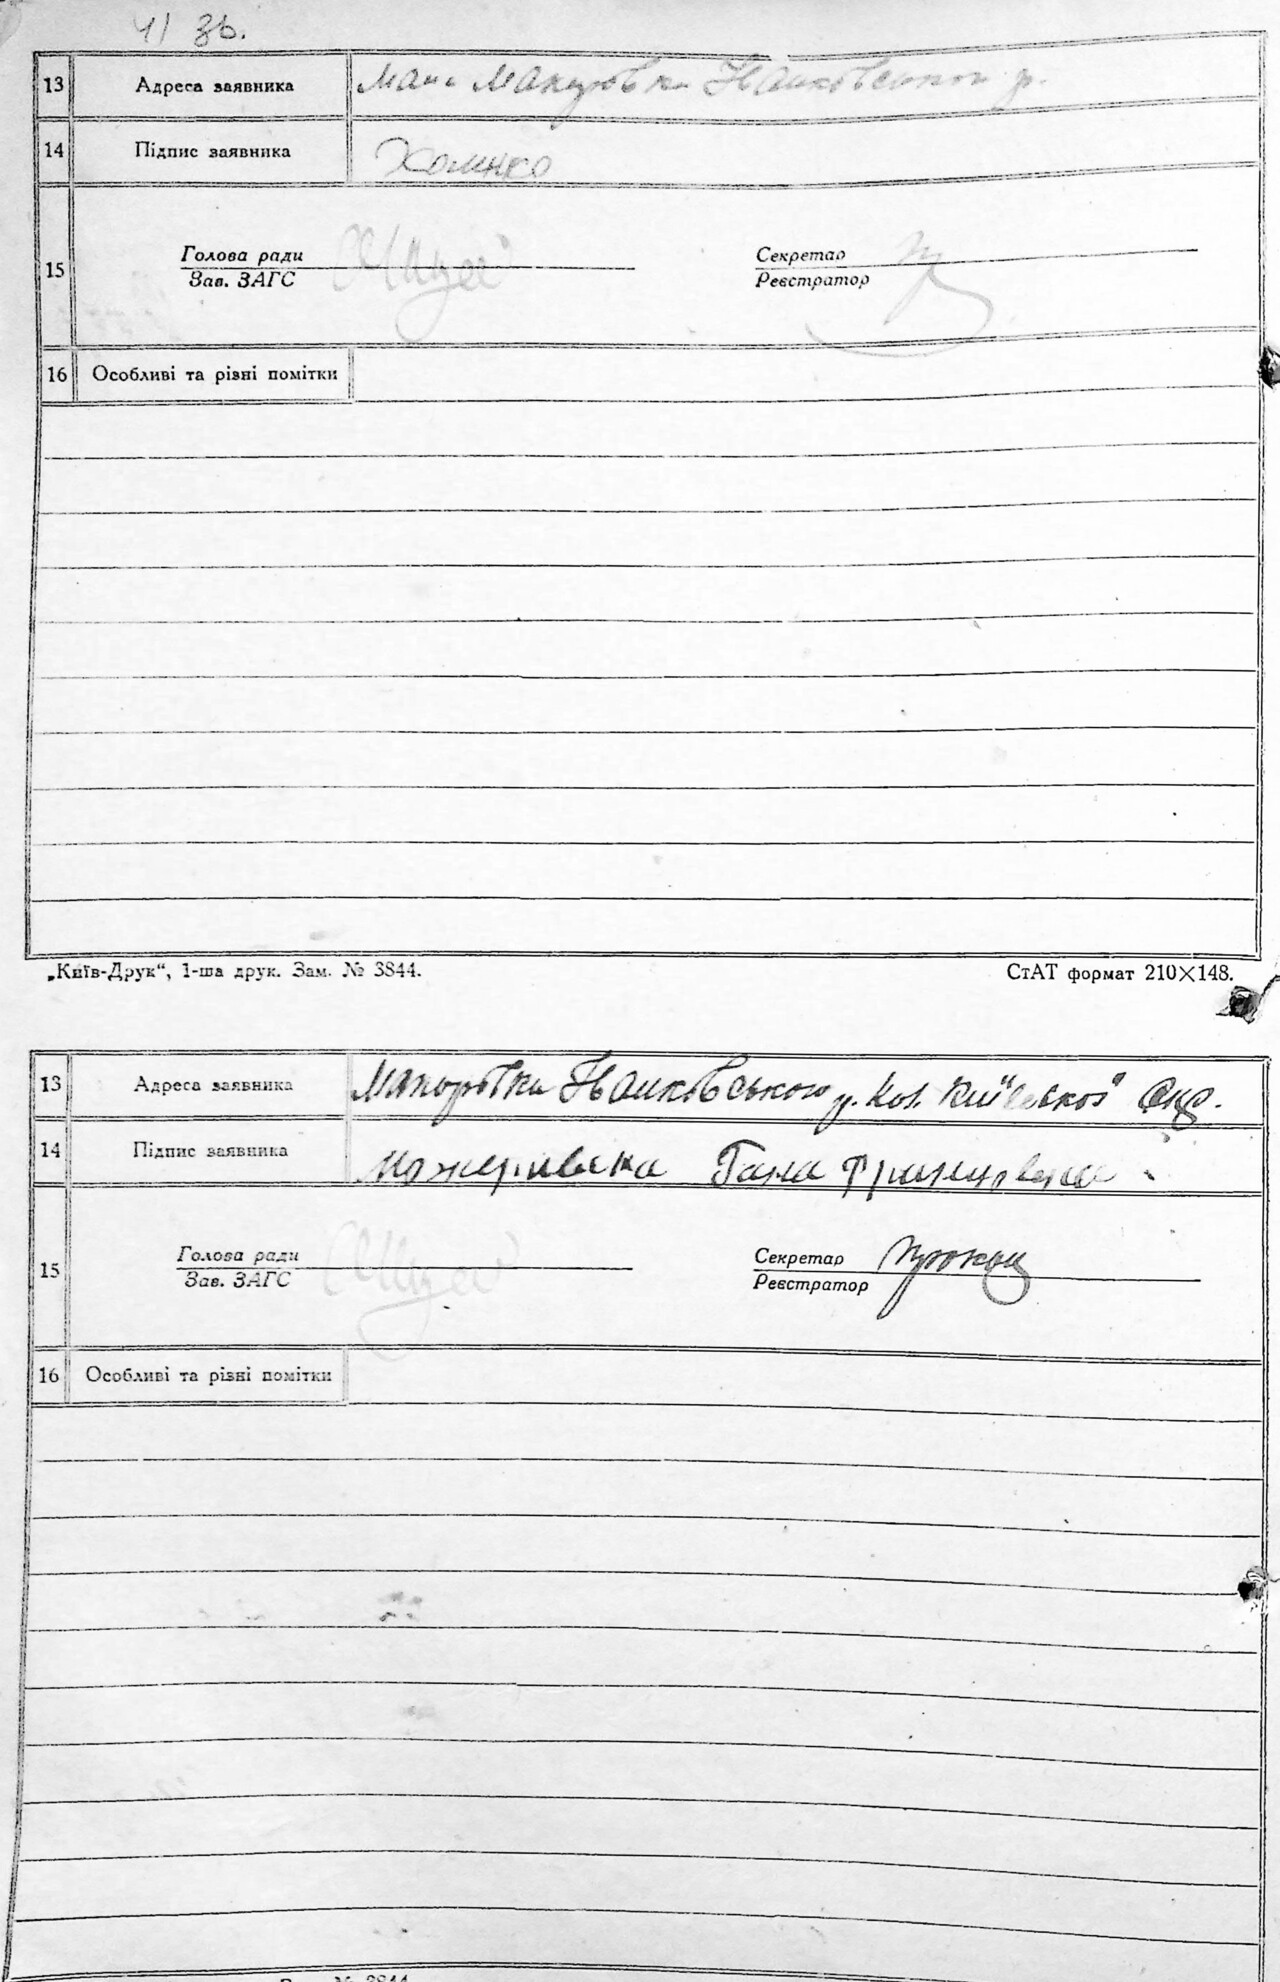 41 зв.
13 Адреса заявника Макуровка Иванковського р.
14 Підпис заявника Хоменко
15 Голова ради Секретар
Зав. ЗАГС Реєстратор
16 Особливі та різні помітки
„Київ-Друк“, 1-ша друк. Зам. № 3844. СтАТ формат 210×148.
13 Адреса заявника Макуровка Иванковського р. кол. Київської Окр.
14 Підпис заявника Гала
15 Голова ради Секретар
Зав. ЗАГС Реєстратор
16 Особливі та різні помітки
№ 3844